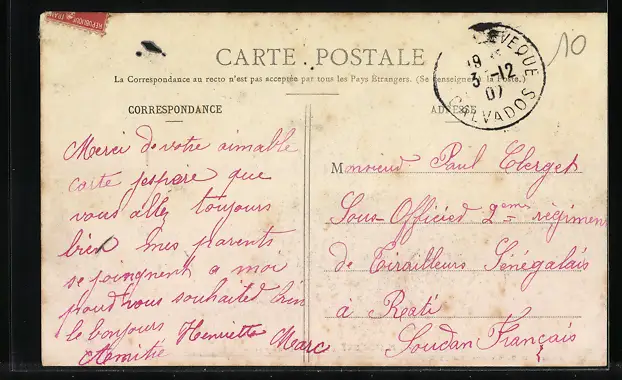 RÉPUBLIQUE FRAN
10
CARTE POSTALE
La Correspondance au recto n'est pas acceptée par tous les Pays Étrangers. (Se renseigner à la Poste.)
EVEQUE
19
3 -12
07
CALVADOS
CORRESPONDANCE
ADRESSE
Merci de votre aimable
carte j'espère que
vous allez toujours
bien mes parents
se joingnent a moi
pour vous souhaiter bien
le bonjours Henriette Marc
Amitié
Monsieur Paul Clerget
Sous-Officier 2ème régiment
de Tirailleurs Sénégalais
à Kati
Soudan Français